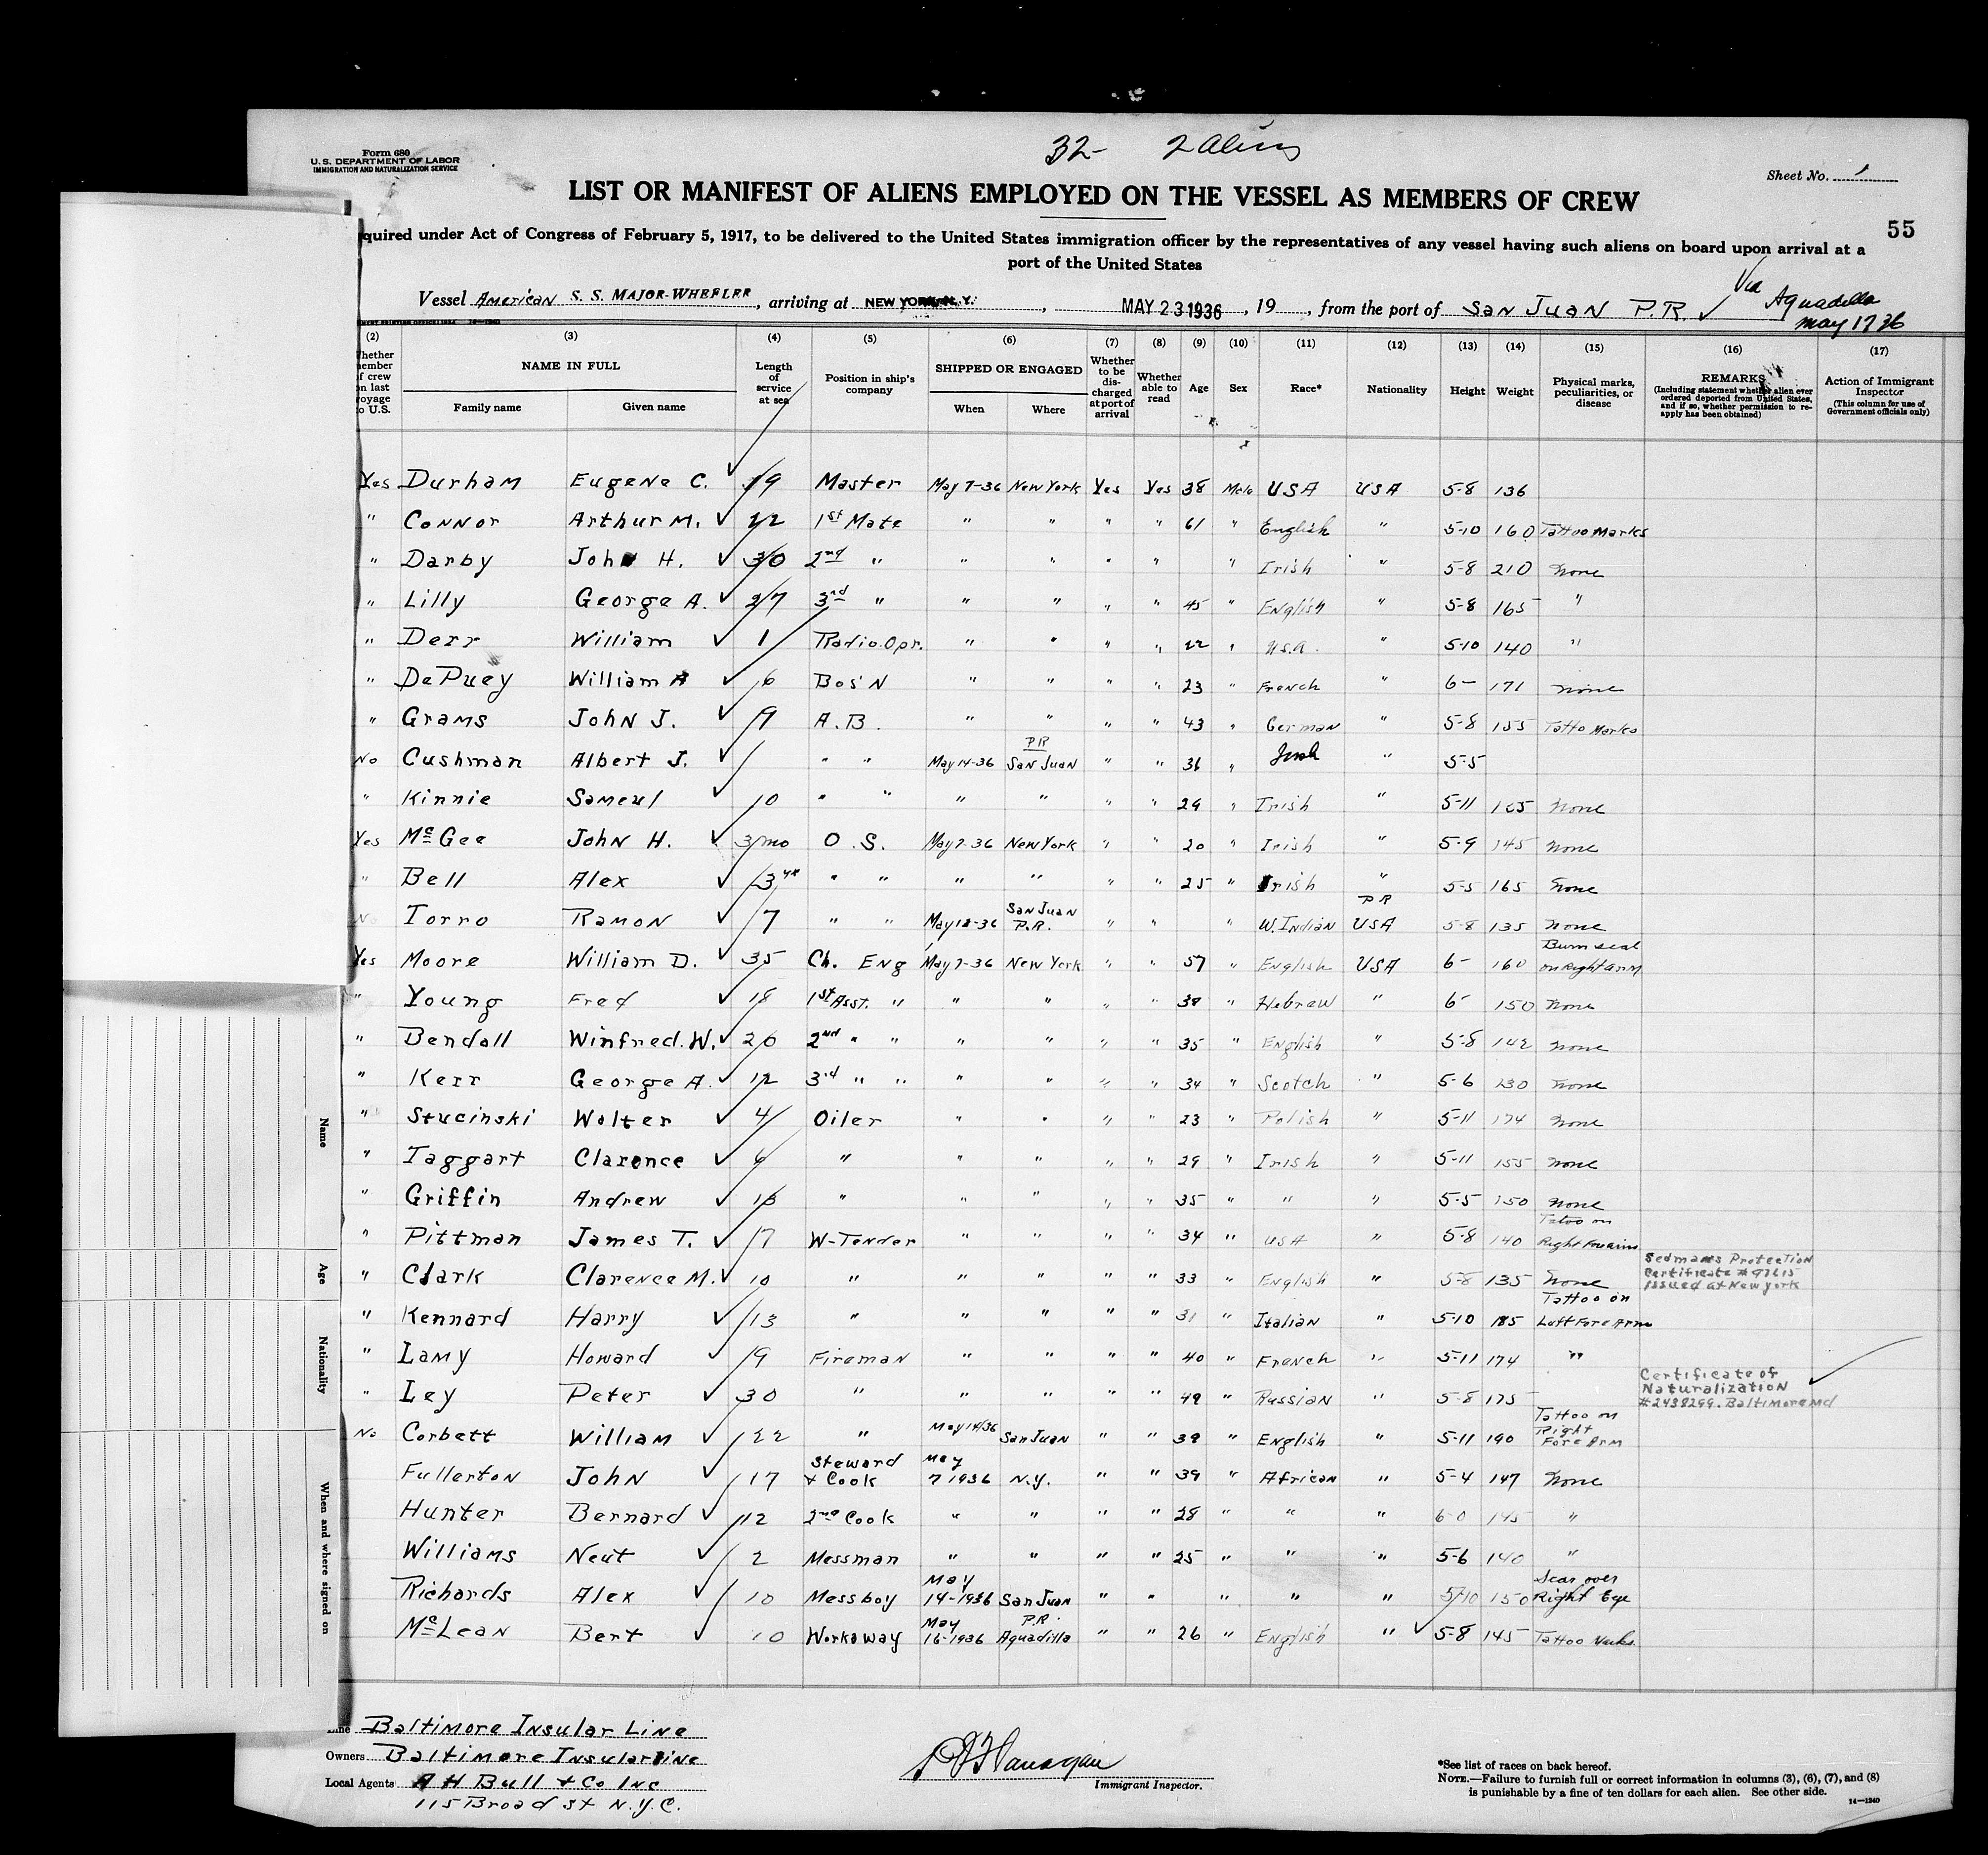 32- 2 Aliens
Form 680
U. S. DEPARTMENT OF LABOR
IMMIGRATION AND NATURALIZATION SERVICE
Sheet No. 1
LIST OR MANIFEST OF ALIENS EMPLOYED ON THE VESSEL AS MEMBERS OF CREW
55
quired under Act of Congress of February 5, 1917, to be delivered to the United States immigration officer by the representatives of any vessel having such aliens on board upon arrival at a
port of the United States
Vessel American S. S. MAJOR-WHEELER, arriving at NEW YORK N.Y., MAY 23 1936, 19, from the port of San Juan P.R. ✓ Via Aguadilla
May 17 36
(2) (3) (4) (5) (6) (7) (8) (9) (10) (11) (12) (13) (14) (15) (16) (17)
hether ember f crew n last oyage o U.S. NAME IN FULL Family name Given name Length of service at sea Position in ship's company SHIPPED OR ENGAGED When Where Whether to be dis-charged at port of arrival Whether able to read Age Sex Race* Nationality Height Weight Physical marks, peculiarities, or disease REMARKS (Including statement whether alien ever ordered deported from United States, and if so, whether permission to re-apply has been obtained) Action of Immigrant Inspector (This column for use of Government officials only)
Yes Durham Eugene C. ✓ 19 Master May 7-36 New York Yes Yes 38 Male USA USA 5-8 136
" Connor Arthur M. ✓ 22 1st Mate " " " " 61 " English " 5-10 160 Tattoo Marks
" Darby John H. ✓ 30 2nd " " " " " " Irish " 5-8 210 None
" Lilly George A. ✓ 27 3rd " " " " " 45 " English " 5-8 165 "
" Derr William ✓ 1 Radio.Opr. " " " " 22 " U.S.A. " 5-10 140 "
" DePuey William A ✓ 6 Bos'N " " " " 23 " French " 6- 171 None
" Grams John J. ✓ 9 A.B. " " " " 43 " German " 5-8 155 Tatto Marks
No Cushman Albert J. ✓ " " May 14-36 PR San Juan " " 36 " Irish " 5-5
" Kinnie Sameul ✓ 10 " " " " " " 29 " Irish " 5-11 165 None
Yes McGee John H. ✓ 3 mo O.S. May 7-36 New York " " 20 " Irish " 5-9 145 None
" Bell Alex ✓ 3 yr " " " " " " 25 " Irish " 5-5 165 None
No Torro Ramon ✓ 7 " " San Juan P.R. " " " W.Indian PR USA 5-8 135 None
Yes Moore William D. ✓ 35 Ch. Eng May 7-36 New York " " 57 " English USA 6- 160 Burn scal on Right arm
" Young Fred ✓ 18 1st Asst. " " " " " " Hebrew " 6- 150 None
" Bendall Winfred.W. ✓ 20 2nd " " " " " " 35 " English " 5-8 142 None
" Kerr George A. ✓ 12 3rd " " " " " " 34 " Scotch " 5-6 130 None
" Stucinski Walter ✓ 4 Oiler " " " " 23 " Polish " 5-11 174 None
" Taggart Clarence ✓ 6 " " " " " 29 " Irish " 5-11 155 None
" Griffin Andrew ✓ " " " " " 35 " " " 5-5 150 None
" Pittman James T. ✓ 17 W-Tender " " " " 34 " USA " 5-8 140 Tatoo on Right Forearm
" Clark Clarence M. ✓ 10 " " " " " 33 " English " 5-8 135 None Sedmans Protection Certificate # 97615 Issued at New york
" Kennard Harry ✓ 13 " " " " " 31 " Italian " 5-10 185 Tattoo on Left Fore Arm
" Lamy Howard ✓ 9 Fireman " " " " 40 " French " 5-11 174 "
" Ley Peter ✓ 30 " " " " " 49 " Russian " 5-8 175 Certificate of Naturalization #2438299. Baltimore Md ✓
No Corbett William ✓ 22 " May 14/36 San Juan " " 39 " English " 5-11 190 Tattoo on Right Fore Arm
Fullerton John ✓ 17 Steward & Cook May 7 1936 N.Y. " " 39 " African " 5-4 147 None
Hunter Bernard ✓ 12 2nd Cook " " " " 28 " " " 6-0 145 "
Williams Neut ✓ 2 Messman " " " " 25 " " " 5-6 140 "
Richards Alex ✓ 10 Messboy May 14-1936 San Juan " " " " " 5-10 150 Scar over Right Eye
McLean Bert ✓ 10 Workaway May 16-1936 P.R. Aguadilla " " 26 " English " ✓ 5-8 145 Tattoo Marks
Name
Age
Nationality
When and where signed on
Line Baltimore Insular Line
Owners Baltimore Insular Line
Local Agents A H Bull & Co Inc
115 Broad St N.Y.C.
Immigrant Inspector.
*See list of races on back hereof.
NOTE.—Failure to furnish full or correct information in columns (3), (6), (7), and (8)
is punishable by a fine of ten dollars for each alien. See other side.
14—1240